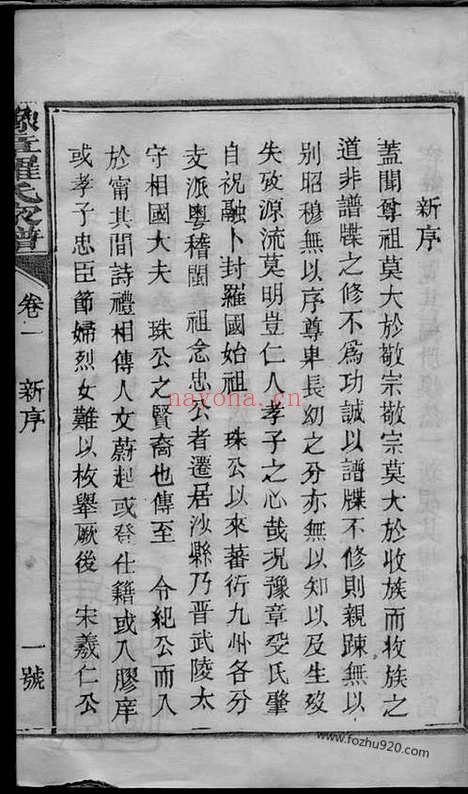 新序
蓋聞尊祖莫大於敬宗敬宗莫大於收族而收族之
道非譜牒之修不為功誠以譜牒不修則親踈無以
別昭穆無以序尊卑長幼之分亦無以知以及生歿
失攷源流莫明豈仁人孝子之心哉況豫章受氏肇
自祝融卜封羅國始祖 珠公以來蕃衍九州各分
支派粵稽閩 祖念忠公者遷居沙縣乃晋武陵太
守相國大夫 珠公之賢裔也傳至 令紀公而入
於甯其間詩禮相傳人文蔚起或登仕籍或入膠庠
或孝子忠臣節婦烈女難以枚舉厥後 宋羲仁公
豫章羅氏家譜
卷一
新序
一號
nayona.cn
www.fozhu920.com